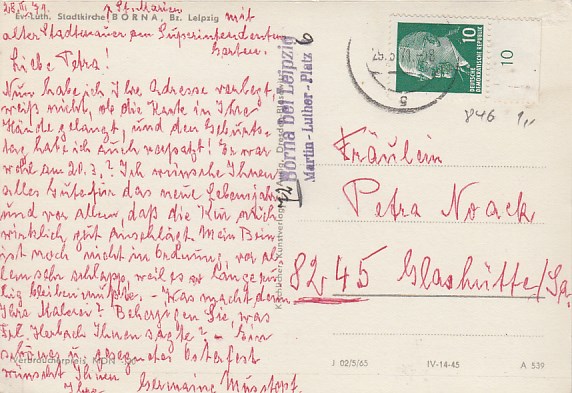 28. III. 71.
St. Marien
Ev.-Luth. Stadtkirche BORNA, Bz. Leipzig mit
alter Stadtmauer am Superintendentur
Garten.
Liebe Petra!
Nun habe ich Ihre Adresse verlegt,
weiß nicht, ob die Karte in Ihre
Hände gelangt, und den Geburts-
tag habe ich auch verpaßt! Er war
wohl am 20.3.? Ich wünsche Ihnen
alles Gute für das neue Lebensjahr
und vor allem, daß die Kur sich
wirklich gut anschlägt. Mein Bein
ist noch nicht in Ordnung, vor al-
lem sehr schlapp, weil es so lange
bleiben mußte. - Was macht denn
Ihre Malerei? Beherzigen Sie, was
Frl. Herbach Ihnen sagte? - Ein
schönes u. gesegnetes Osterfest
wünscht Ihnen
Ihre Germaine
Verbraucherpreis MDN
Borna bei Leipzig
Martin-Luther-Platz 6
10
DEUTSCHE
DEMOKRATISCHE REPUBLIK
10
846
Fräulein
Petra Noack
8245 Glashütte/Sa.
J 02/5/65 IV-14-45 A 539